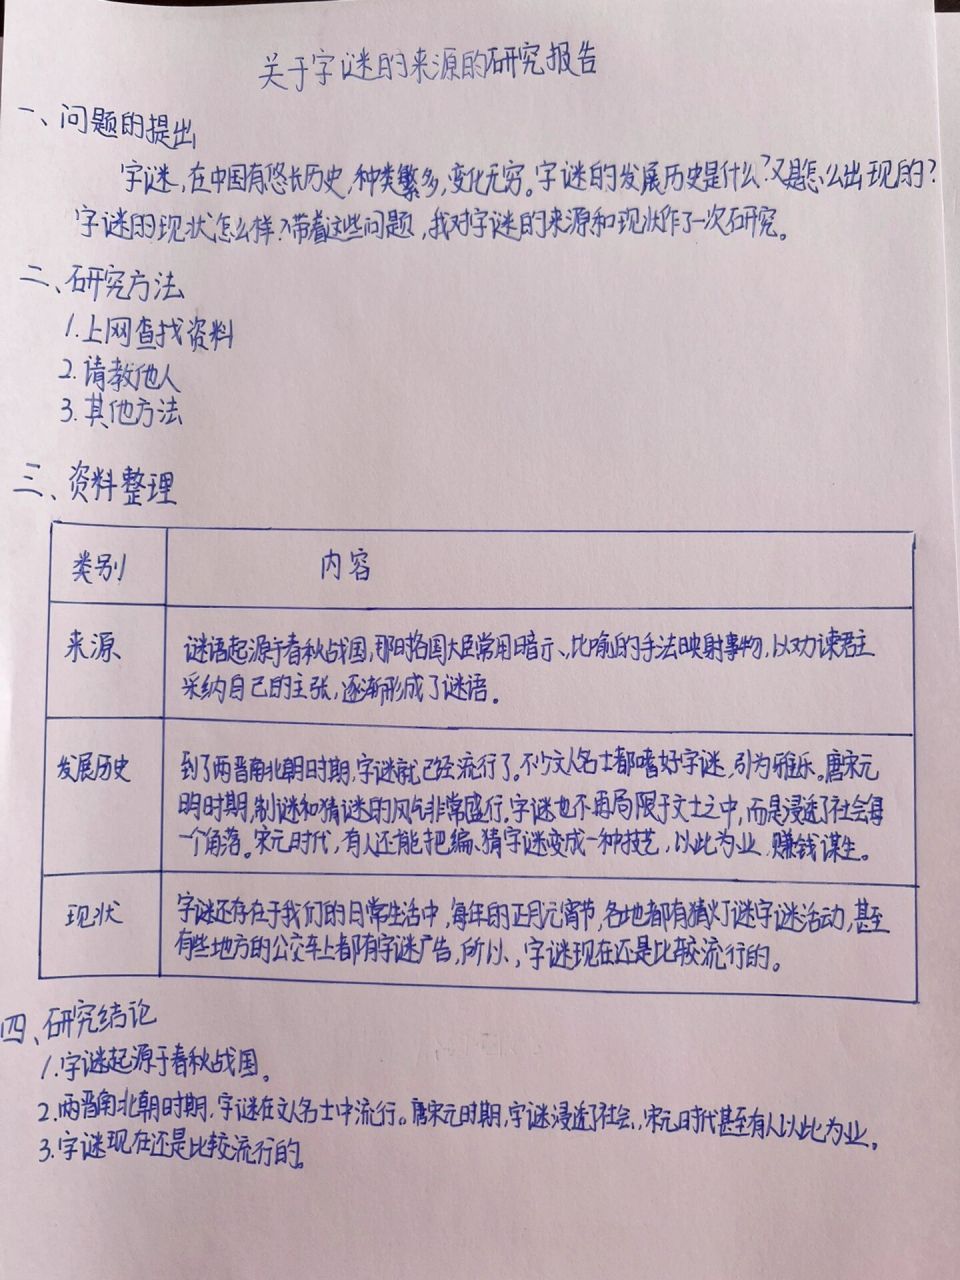 关于字谜的来源的研究报告
一、问题的提出
字谜,在中国有悠长历史,种类繁多,变化无穷。字谜的发展历史是什么?又是怎么出现的?
字谜的现状怎么样?带着这些问题,我对字谜的来源和现状作了一次研究。
二、研究方法
1.上网查找资料
2.请教他人
3.其他方法
三、资料整理
类别 内容
来源
谜语起源于春秋战国,那时各国大臣常用暗示、比喻的手法映射事物,以劝谏君主
采纳自己的主张,逐渐形成了谜语。
发展历史
到了两晋南北朝时期,字谜就已经流行了。不少文人名士都嗜好字谜,引为雅乐。唐宋元
明时期,制谜和猜谜的风气非常盛行。字谜也不再局限于文士之中,而是浸透了社会每
一个角落。宋元时代,有人还能把编、猜字谜变成一种技艺,以此为业,赚钱谋生。
现状
字谜还存在于我们的日常生活中,每年的正月元宵节,各地都有猜灯谜字谜活动,甚至
有些地方的公交车上都有字谜广告,所以,字谜现在还是比较流行的。
四、研究结论
1.字谜起源于春秋战国。
2.两晋南北朝时期,字谜在文人名士中流行。唐宋元时期,字谜浸透了社会,宋元时代甚至有人以此为业。
3.字谜现在还是比较流行的。